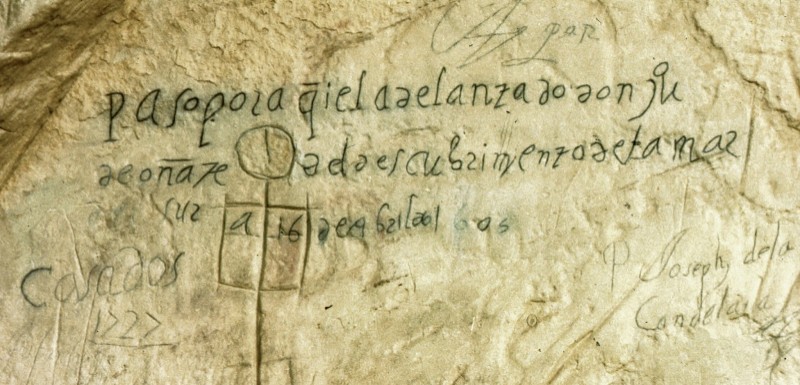 paso por aq̄i el adelantado don juº
de oñate del descubrimento de la mar
del sur a 16 de Abril del 1605
Casados
1727
P Joseph dela
Candelaria